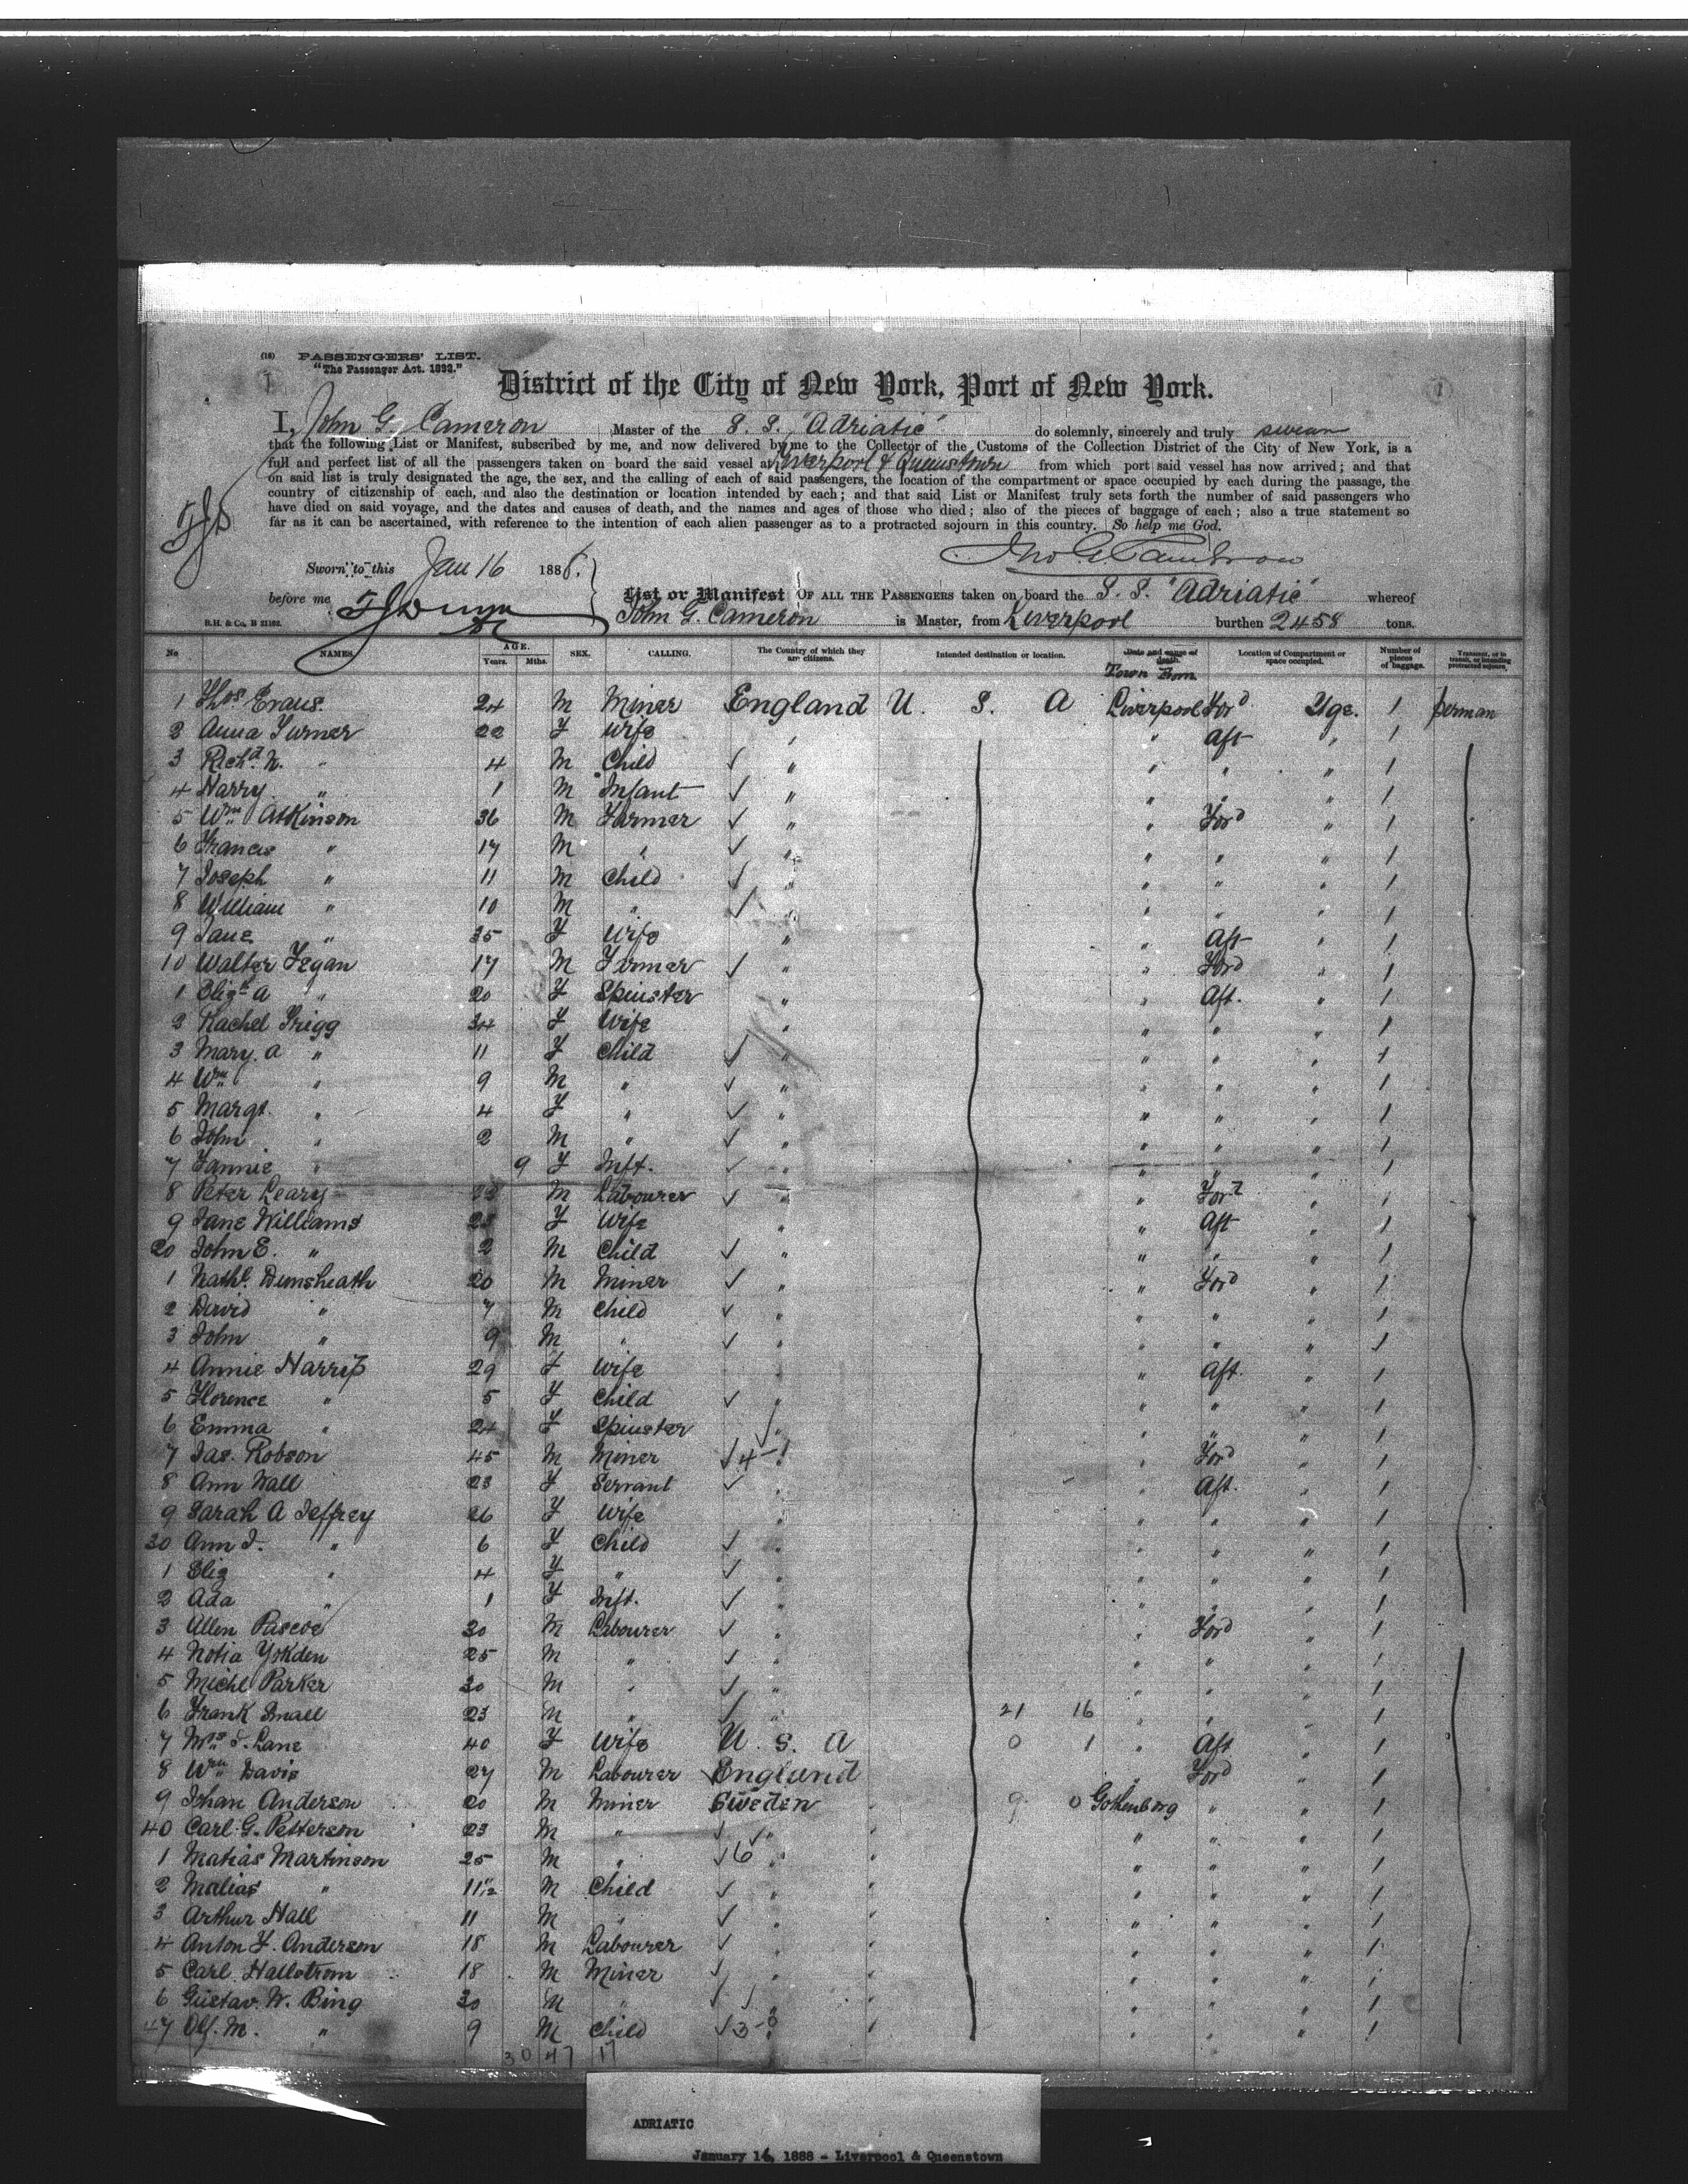 (18) PASSENGERS' LIST.
"The Passenger Act. 1882."
District of the City of New York, Port of New York.
I, John G. Cameron Master of the S. S. "Adriatic" do solemnly, sincerely and truly swear
that the following List or Manifest, subscribed by me, and now delivered by me to the Collector of the Customs of the Collection District of the City of New York, is a
full and perfect list of all the passengers taken on board the said vessel at Liverpool & Queenstown from which port said vessel has now arrived; and that
on said list is truly designated the age, the sex, and the calling of each of said passengers, the location of the compartment or space occupied by each during the passage, the
country of citizenship of each, and also the destination or location intended by each; and that said List or Manifest truly sets forth the number of said passengers who
have died on said voyage, and the dates and causes of death, and the names and ages of those who died; also of the pieces of baggage of each; also a true statement so
far as it can be ascertained, with reference to the intention of each alien passenger as to a protracted sojourn in this country. So help me God.
Jno G Cameron
Sworn to this Jan 16 1888.
before me
List or Manifest OF ALL THE PASSENGERS taken on board the S. S. "Adriatic" whereof
John G. Cameron is Master, from Liverpool burthen 2458 tons.
R.H. & Co. B 21162.
No NAMES. AGE. Years. Mths. SEX. CALLING. The Country of which they are citizens. Intended destination or location. Date and cause of death. Town From Location of Compartment or space occupied. Number of pieces of baggage. Transient, or in transit, or intending protracted sojourn.
1 Thos Evans. 24 M Miner England U. S. A Liverpool Ford Stge. 1 Perman
2 Anna Turner 22 F Wife " " Aft " 1
3 Richd. W. " 4 M Child " " " " 1
4 Harry " 1 M Infant " " " " 1
5 Wm Atkinson 36 M Farmer " " Ford " 1
6 Francis " 17 M " " " " " 1
7 Joseph " 11 M Child " " " " 1
8 William " 10 M " " " " " 1
9 Jane " 35 F Wife " " Aft " 1
10 Walter Fegan 17 M Farmer " " Ford " 1
1 Elizth A " 20 F Spinster " " Aft. " 1
2 Rachel Trigg 34 F Wife " " " " 1
3 Mary. A " 11 F Child " " " " 1
4 Wm " 9 M " " " " " 1
5 Margt. " 4 F " " " " " 1
6 John " 2 M " " " " " 1
7 Fannie " 9 F Inft. " " " " 1
8 Peter Leary M Labourer " " Ford " 1
9 Jane Williams 23 F Wife " " Aft " 1
20 John E. " 2 M Child " " " " 1
1 Nathl. Dunsheath 20 M Miner " " Ford " 1
2 David " 7 M Child " " " " 1
3 John " 9 M " " " " " 1
4 Annie Harris 29 F Wife " Aft. " 1
5 Florence " 5 F Child " " " " 1
6 Emma " 24 F Spinster " " " " 1
7 Jas. Robson 45 M Miner 4 " Ford " 1
8 Ann Wall 23 F Servant " " Aft. " 1
9 Sarah A Jeffrey 26 F Wife " " " " 1
30 Ann J. " 6 F Child " " " " 1
1 Eliz " 4 F " " " " " 1
2 Ada " 1 F Inft. " " " " 1
3 Allen Pascoe 30 M Labourer " " Ford " 1
4 25 M " " " " " 1
5 Michl Parker 30 M " " " " " 1
6 Frank Small 23 M " " 21 16 " " " 1
7 Mrs S. Lane 40 F Wife U. S. A 0 1 " Aft " 1
8 Wm Davis 27 M Labourer England " Ford " 1
9 Johan Anderson 20 M Miner Sweden " 9 0 Gothenburg " " 1
40 Carl G. Petterson 23 M " " " " " " 1
1 Matias Martinson 25 M " 6 " " " " " 1
2 Matias " 11 M Child " " " " " 1
3 Arthur Hall 11 M " " " " " " 1
4 Anton F. Anderson 18 M Labourer " " " " " 1
5 Carl Hallstrom 18 M Miner " " " " " 1
6 Gustav. W. Bing 30 M " " " " " 1
47 Olf. M. " 9 M Child 3 " " " " 1
30 47 17
ADRIATIC
January 16, 1888 - Liverpool & Queenstown